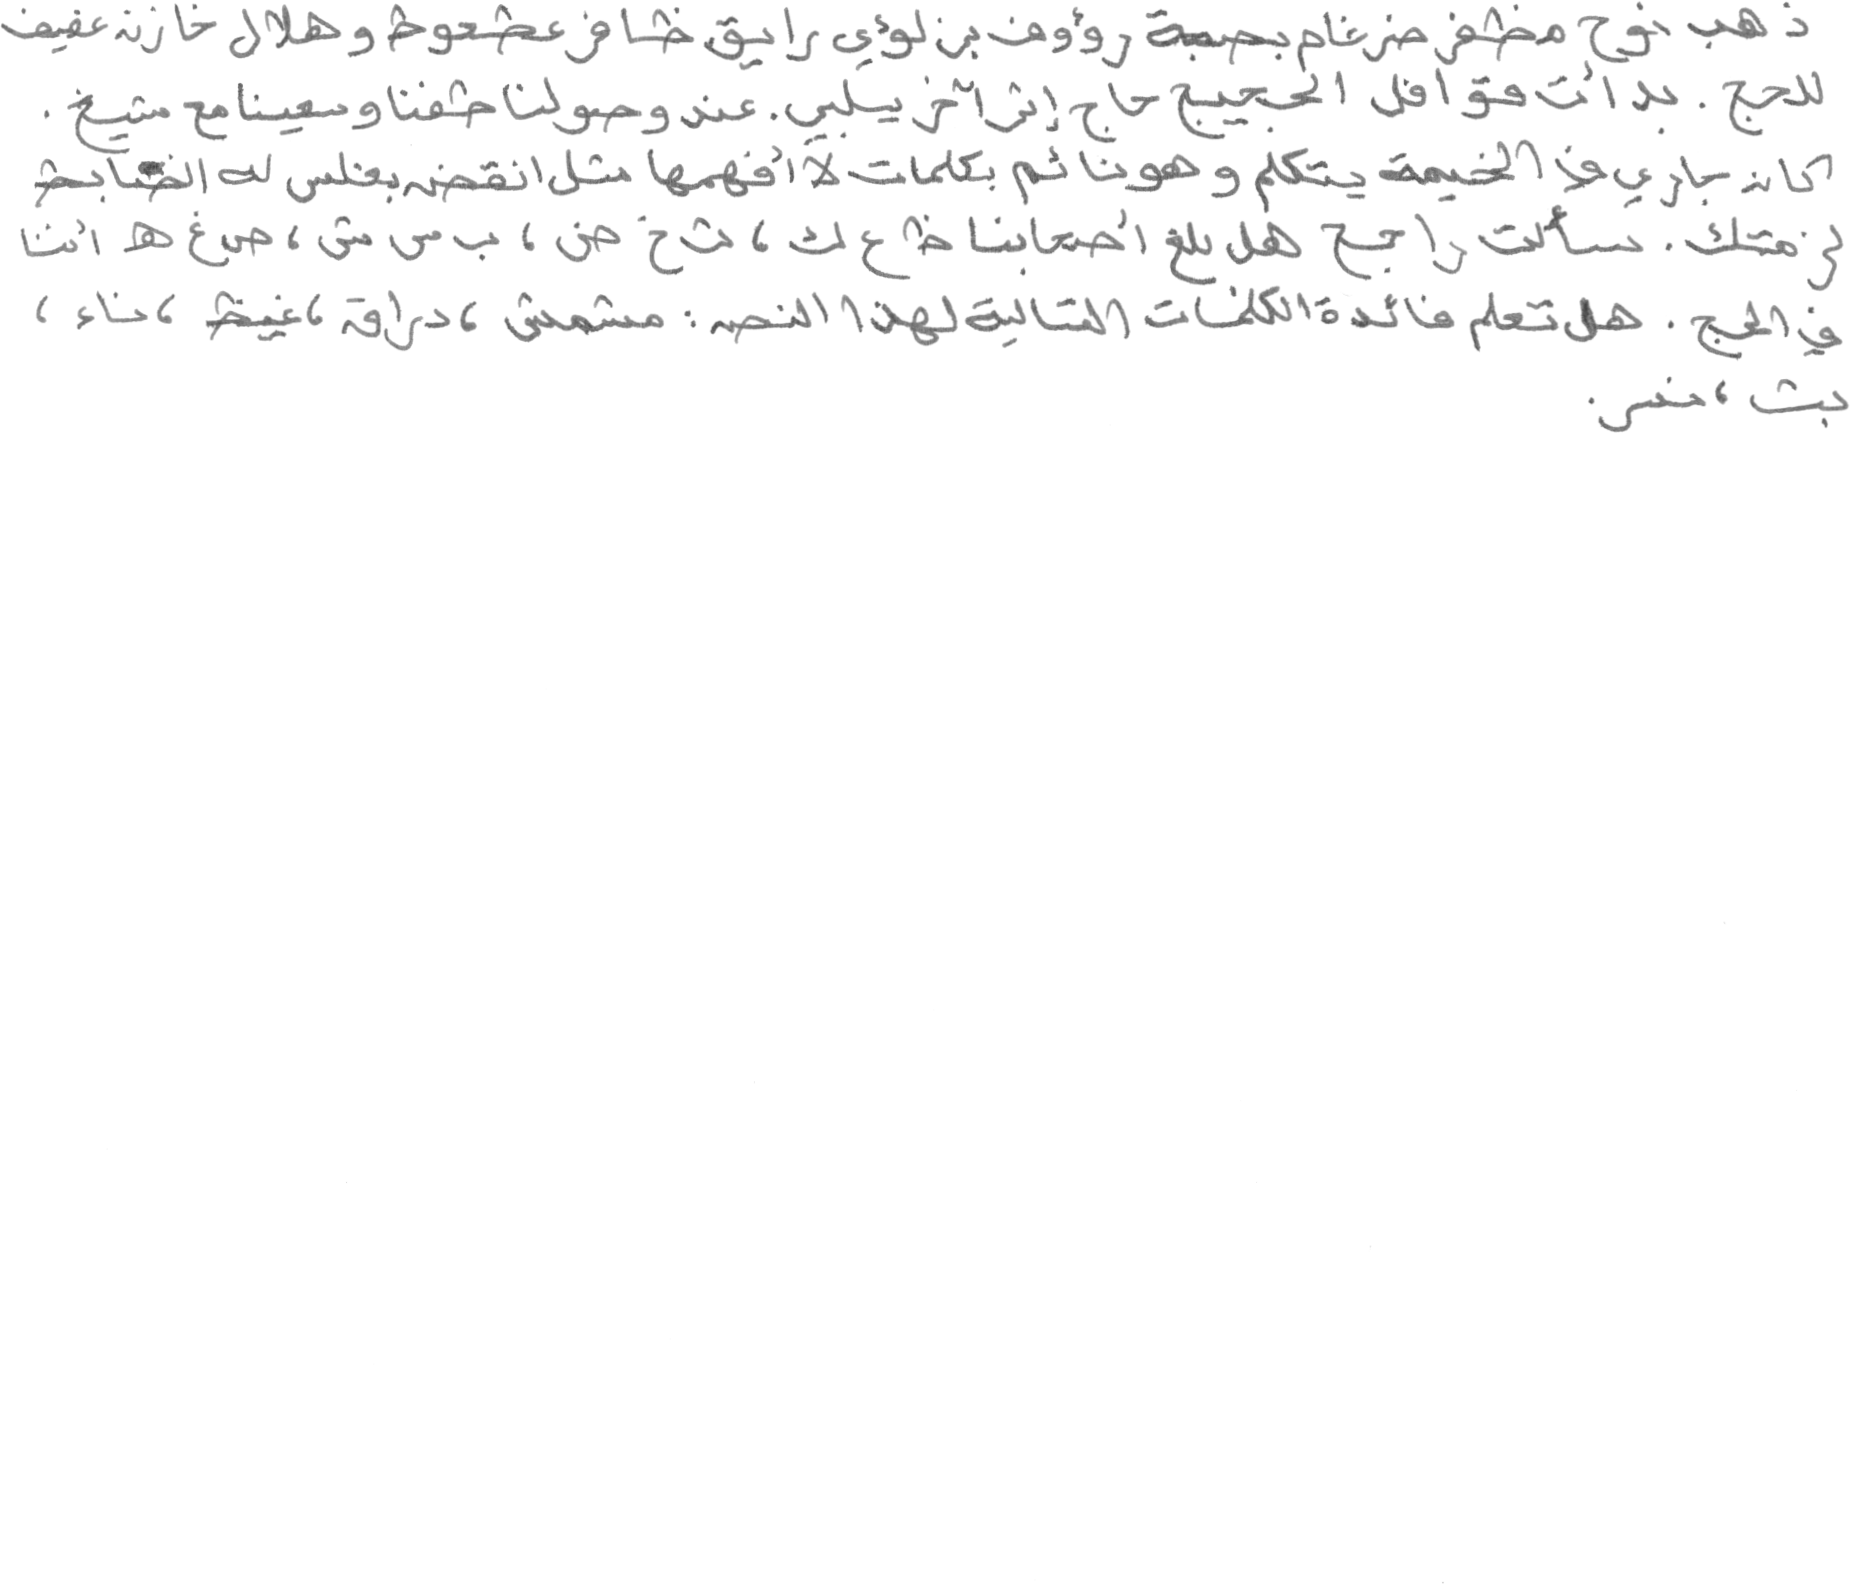 ذهب نوح مظفر ضرغام بصحبة رؤوف بن لؤي رايق ظافر عطعوط وهلال خازن عفيف
للحج . بدأت قوافل الحجيج حاج إثر آخر يلبي . عند وصولنا طفنا وسعينا مع شيخ .
كان جاري في الخيمة يتكلم وهو نائم بكلمات لا أفهمها مثل انقض بغلس له الضابط
لزمتك . سألت راجح هل بلغ أصحابنا ظ ع ك ، ث خ ض ، ب س ش ، ص غ هـ أننا
في الحج . هل تعلم فائدة الكلمات التالية لهذا النص : مشمش ، دراق ، غيظ ، ناء ،
بث ، نفس .